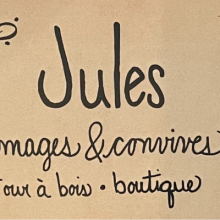 Jules
omages & convives
four à bois • boutique